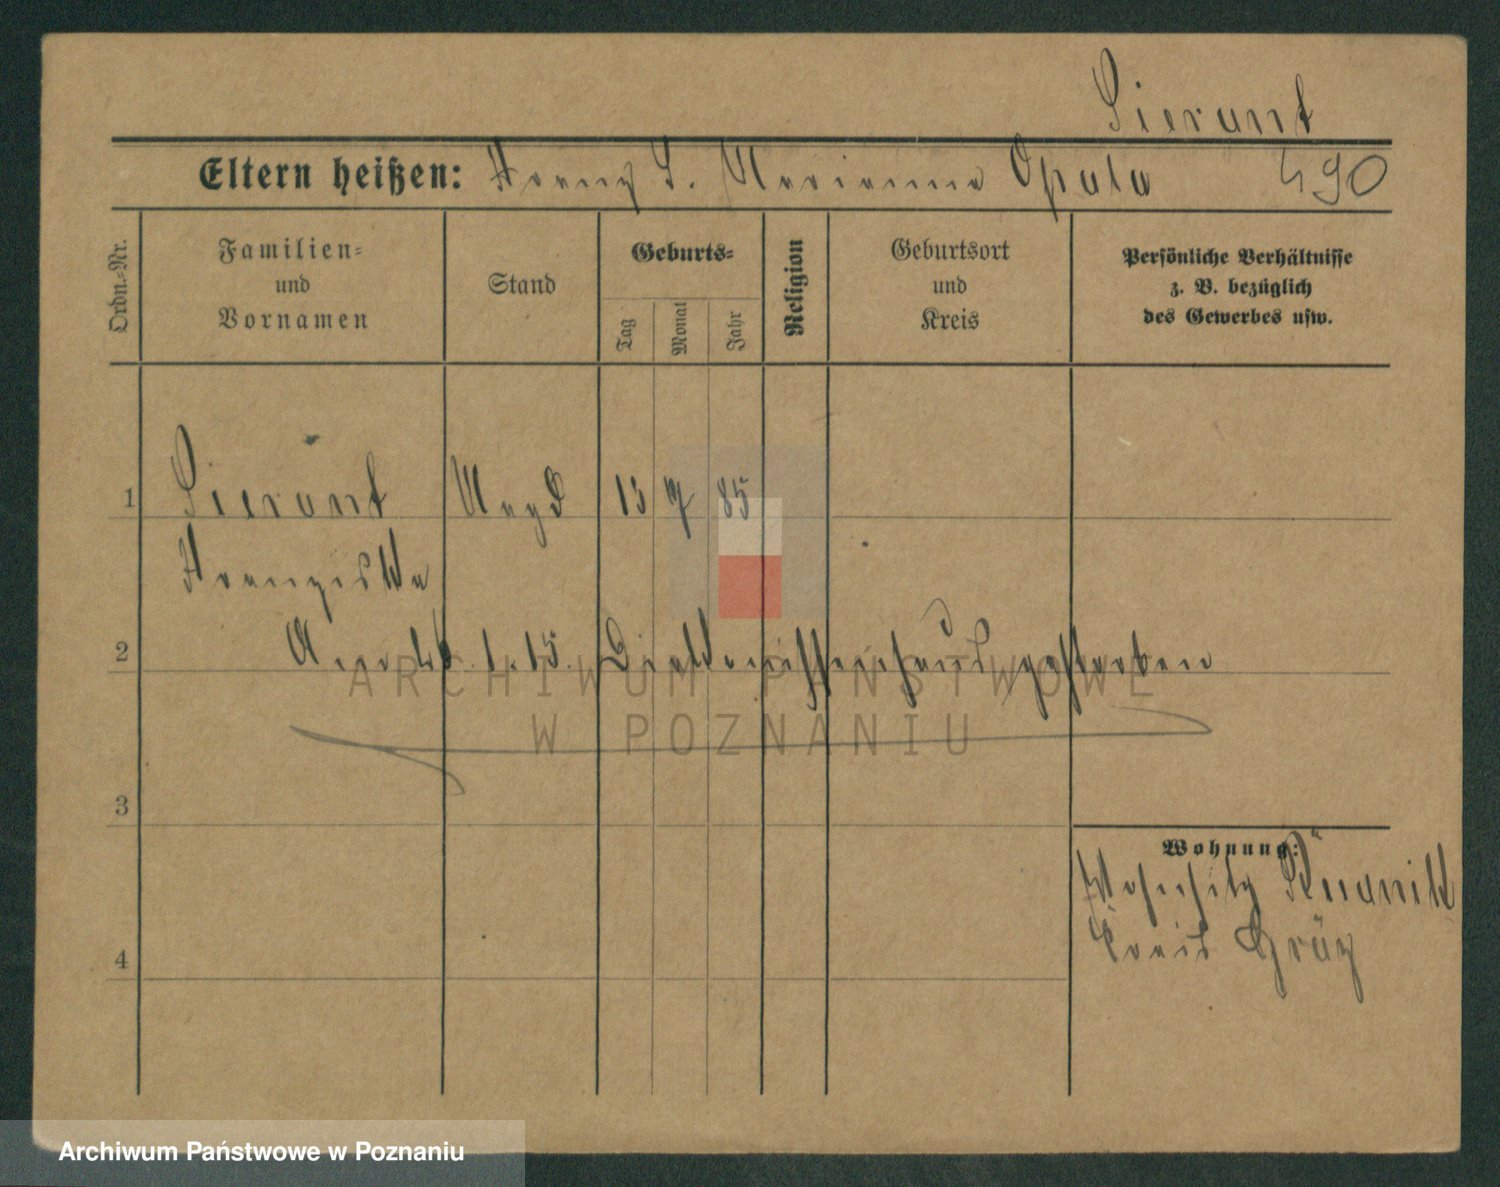 Sierant
Eltern heißen: Franz S. Marianna Opala 490
Ordn.-Nr.
Familien-
und
Vornamen
Stand
Geburts-
Tag
Monat
Jahr
Religion
Geburtsort
und
Kreis
Persönliche Verhältnisse
z. B. bezüglich
des Gewerbes usw.
1 Sierant Magd 13 7 85
Franziska
2 1. 15. Diakonissenhaus gestorben
ARCHIWUM PAŃSTWOWE
W POZNANIU
3
Wohnung:
Wohnsitz
4 Kreis Grätz
Archiwum Państwowe w Poznaniu